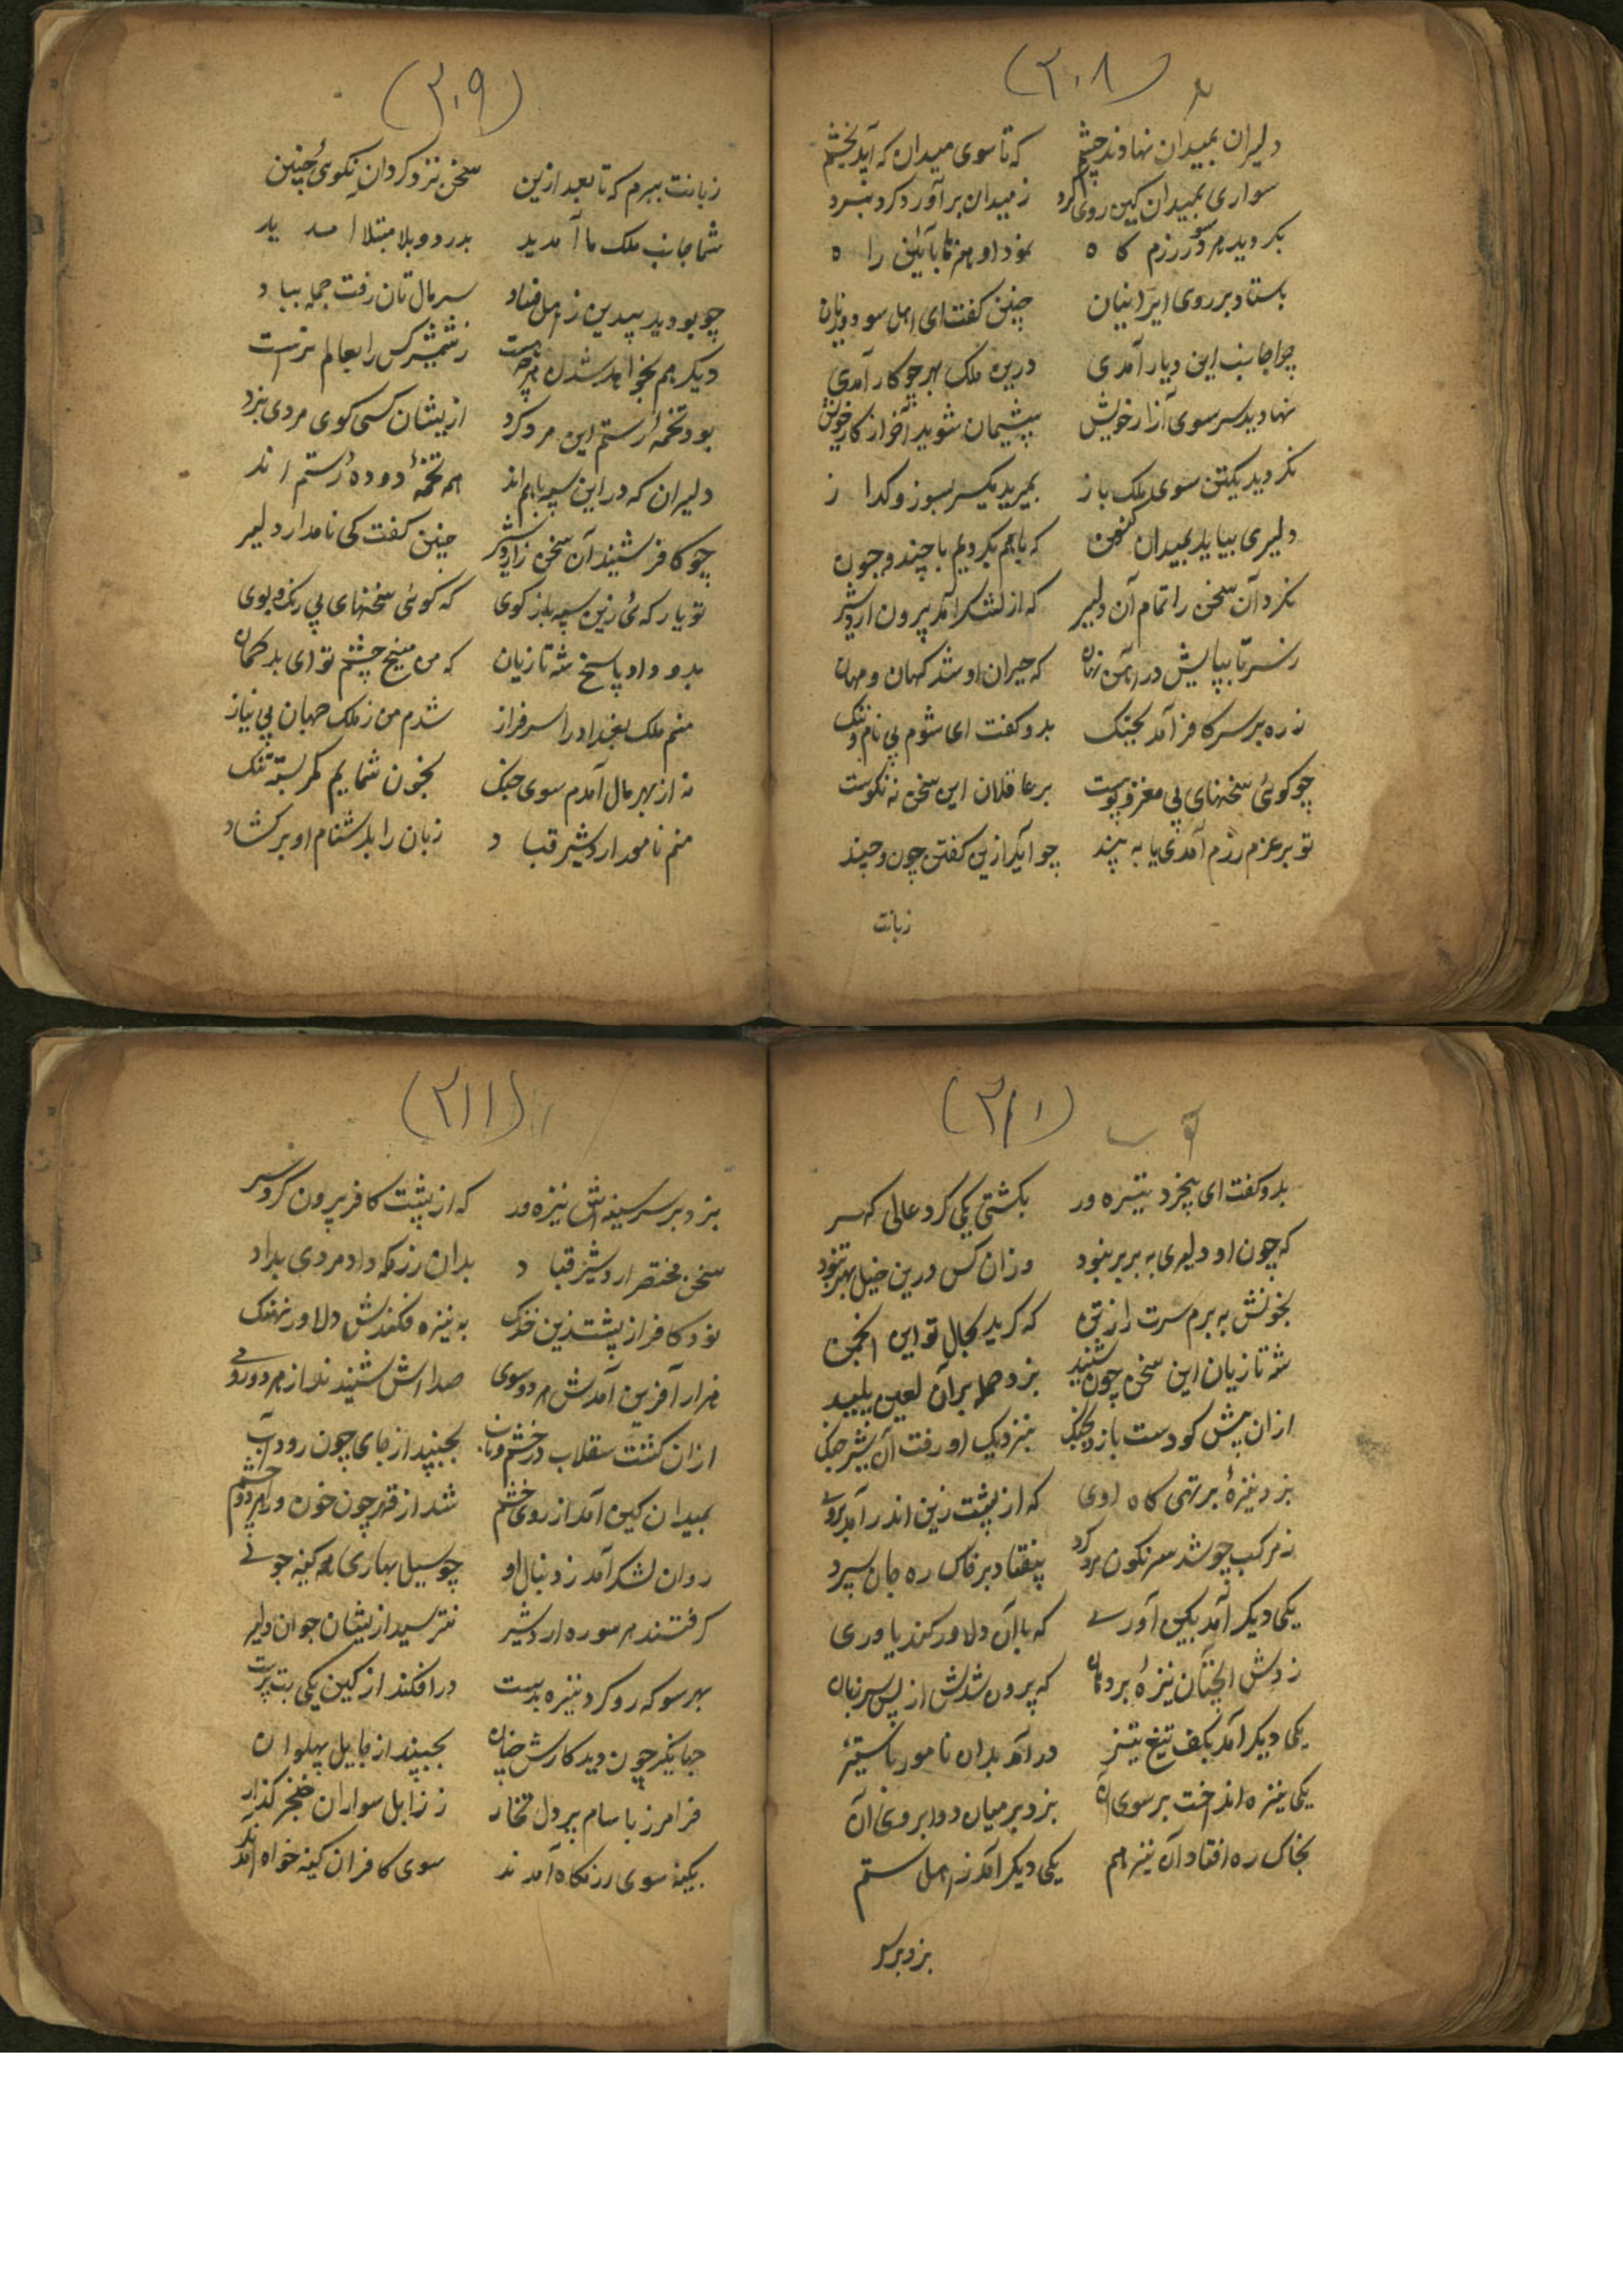 (۳۰۸)
دلیران بمیدان نهادند چشم که تا سوی میدان که آید بخشم
سواری بمیدان کین روی کرد ز میدان برآورد کرد نبرد
بکردید هر سو در رزم کاه نمود او هنرها بآئین راه
باستاد بر روی ایرانیان چنین کفت ای اهل سود و زیان
چرا جانب این دیار آمدی درین ملک بهر چو کار آمدی
نهادید سر سوی آزار خویش پشیمان شوید آخر از کار خویش
نکردید یکتن سوی ملک باز بمیرید یکسر بسوز و کداز
دلیری بیاید بمیدان کنون که با هم بکردیم با چند و چون
نکرد آن سخن را تمام آن دلیر که از لشکر آمد برون اردشیر
ز سر تا بپایش در آهن نهان که حیران او شد کهان و مهان
ز ره بر سر کافر آمد بجنک بدو کفت ای شوم بی نام و ننک
چو کوئی سخنهای بی مغز و پوست بر عاقلان این سخن نه نکوست
تو بر عزم رزم آمدی یا به پند چو آید ازین کفتن چون و چند
زبانت
(۳۰۹)
زبانت ببرم که تا بعد ازین سخن نزد کردان نکوئی چنین
شما جانب ملک ما آمدید بدرد و بلا مبتلا آمدید
چو بودید بیدین ز اهل فساد سر مال تان رفت جمله بباد
دیکر هم بخواهد شدن هرچه هست ز شمشیر کس را بعالم نرست
بود تخمه رستم این مرد کرد ازیشان کسی کوی مردی نبرد
دلیران که در این سپه باهم اند همه تخمهٔ دودهٔ رستم اند
چو کافر شنید آن سخن ز اردشیر چنین کفت کی نامدار دلیر
تو باری که ئی زین سپه باز کوی که کوئی سخنهای بی رنک و بوی
بدو داد پاسخ شه تازیان که من میخ چشم تو ای بدکمان
منم ملک بغداد را سرفراز شدم من ز ملک جهان بی نیاز
نه از بهر مال آمدم سوی جنک بخون شمایم کمر بسته تنک
منم نامور اردشیر قباد زبان را بدشنام او برکشاد
(۳۱۰)
بدو کفت ای بیخرد تیره ور بکشتی یکی کرد عالی کهر
که چون او دلیری به بربر نبود وزان کس درین خیل بهتر نبود
بخونش به برم سرت را ز تن که کرید بحال تو این انجمن
شه تازیان این سخن چون شنید بزد حمله بر آن لعین پلید
ازان پیش کو دست یازد بجنک بنزدیک او رفت آن شیر جنک
بزد نیزهٔ بر تهی کاه اوی که از پشت زین اندر آمد بروی
ز مرکب چو شد سرنکون مرد کرد بیفتاد بر خاک ره جان سپرد
یکی دیکر آمد بکین آوری که با آن دلاور کند یاوری
زدش آنچنان نیزهٔ بر دهان که بیرون شدش از پس سر زبان
یکی دیکر آمد بکف تیغ تیز درآمد بدان نامور با ستیز
یکی نیزه انداخت بر سوی آن بزد بر میان دو ابروی آن
بخاک ره افتاد آن نیز هم یکی دیکر آمد ز اهل ستم
بزد بر سر
(۳۱۱)
بزد بر سر سینه اش نیزه ور که از پشت کافر برون کرد سر
سخن مختصر اردشیر قباد بدان رزمکه داد مردی بداد
نود کافر از پشت زین خدنک به نیزه فکندش دلاور نهنک
هزار آفرین آمدش هر دو سوی صدا اش شنیدند از هر دو روی
ازان کشت سقلاب در خشم و تاب بجنبید از جای چون رود آب
بمیدان کین آمد از روی خشم شد از قهر چون خون ورا هر دو چشم
روان لشکر آمد ز دنبال او چو سیل بهاری همه کینه جوئے
کرفتند هر سو ره اردشیر نترسید ازیشان جوان دلیر
بهر سو که رو کرد نیزه بدست درافکند از کین یکی بت پرست
جهانکیر چون دید کارش چنان بجنبید از جا یل پهلوان
فرامرز با سام یردل تخار ز زابل سواران خنجر کذار
بکینه سوی رزمکاه آمدند سوی کافران کینه خواه آمدند